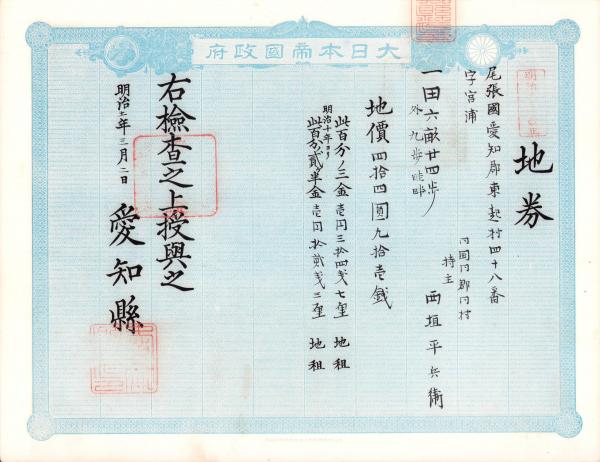 大日本帝國政府
地券
尾張國愛知郡東起村四十八番
字宮浦
同國同郡同村
持主 西垣平兵衛
一田六畝廿四歩
外九歩畦畔
地價四拾四圓九拾壱銭
此百分ノ三金壱円三拾四銭七厘 地租
明治十年ヨリ
此百分ノ貳半金壱円拾貳銭三厘 地租
右檢查之上授與之
明治 年三月二日
愛知縣